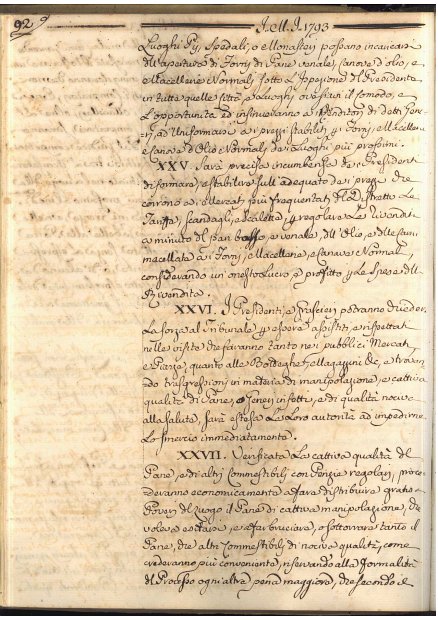 92
I. M. I. 1793
Luoghi Pij, Spedali, o Monasterj possano incaricarsi
dell'apertura di Forni di Pane venale, Canove d'olio, e
Macellerie Normali sotto l'Ispezione del Presidente
in tutte quelle Città, e Luoghi, ove siavi il comodo, e
l'opportunità ed insinueranno a Venditori di detti Gene-
ri, ad Uniformarsi a i prezzi stabiliti Forni, Macellerie
e Canove d'Olio Normali, de i Luoghi più prossimi.
XXV. Sarà precisa incumbenza de Presidenti
di formare, e stabilire sull'adequato de i prezzi che
corrono a i Mercati più frequentati del Distretto Le
Tariffe, scandagli, e Calette regolare Le Vendite
a minuto del pan basso, e venale, dell'Olio, e delle carni
macellate a i Forni, Macellerie, e Canove Normali,
considerando un onesto lucro, e profitto Le Spese della
Rivendita.
XXVI. I Presidenti, e Grascieri potranno chieder
La forza al Tribunale essere assistiti, e rispettati
nelle visite che faranno tanto ne i pubblici Mercati
e Piazze, quanto alle Botteghe, Magazzini &c, e trovan-
do trasgressioni in materia di manipolazione, e cattiva
qualità di Pane, o Generi infetti, e di qualità nocive
alla salute, sarà estesa La Loro autorità ad impedirne
Lo smercio immediatamente.
XXVII. Verificata La cattiva qualità del
Pane, e di altri Commestibili con Perizie regolari, proce-
deranno economicamente a far distribuire gratis a
Poveri del Luogo il Pane di cattiva manipolazione, che
volesse esitarsi, e a far bruciare, o sotterrare tanto il
Pane, che altri Commestibili di nocive qualità, come
crederanno più conveniente, riservando alla Formalità
del Processo ogni altra pena maggiore, che secondo il